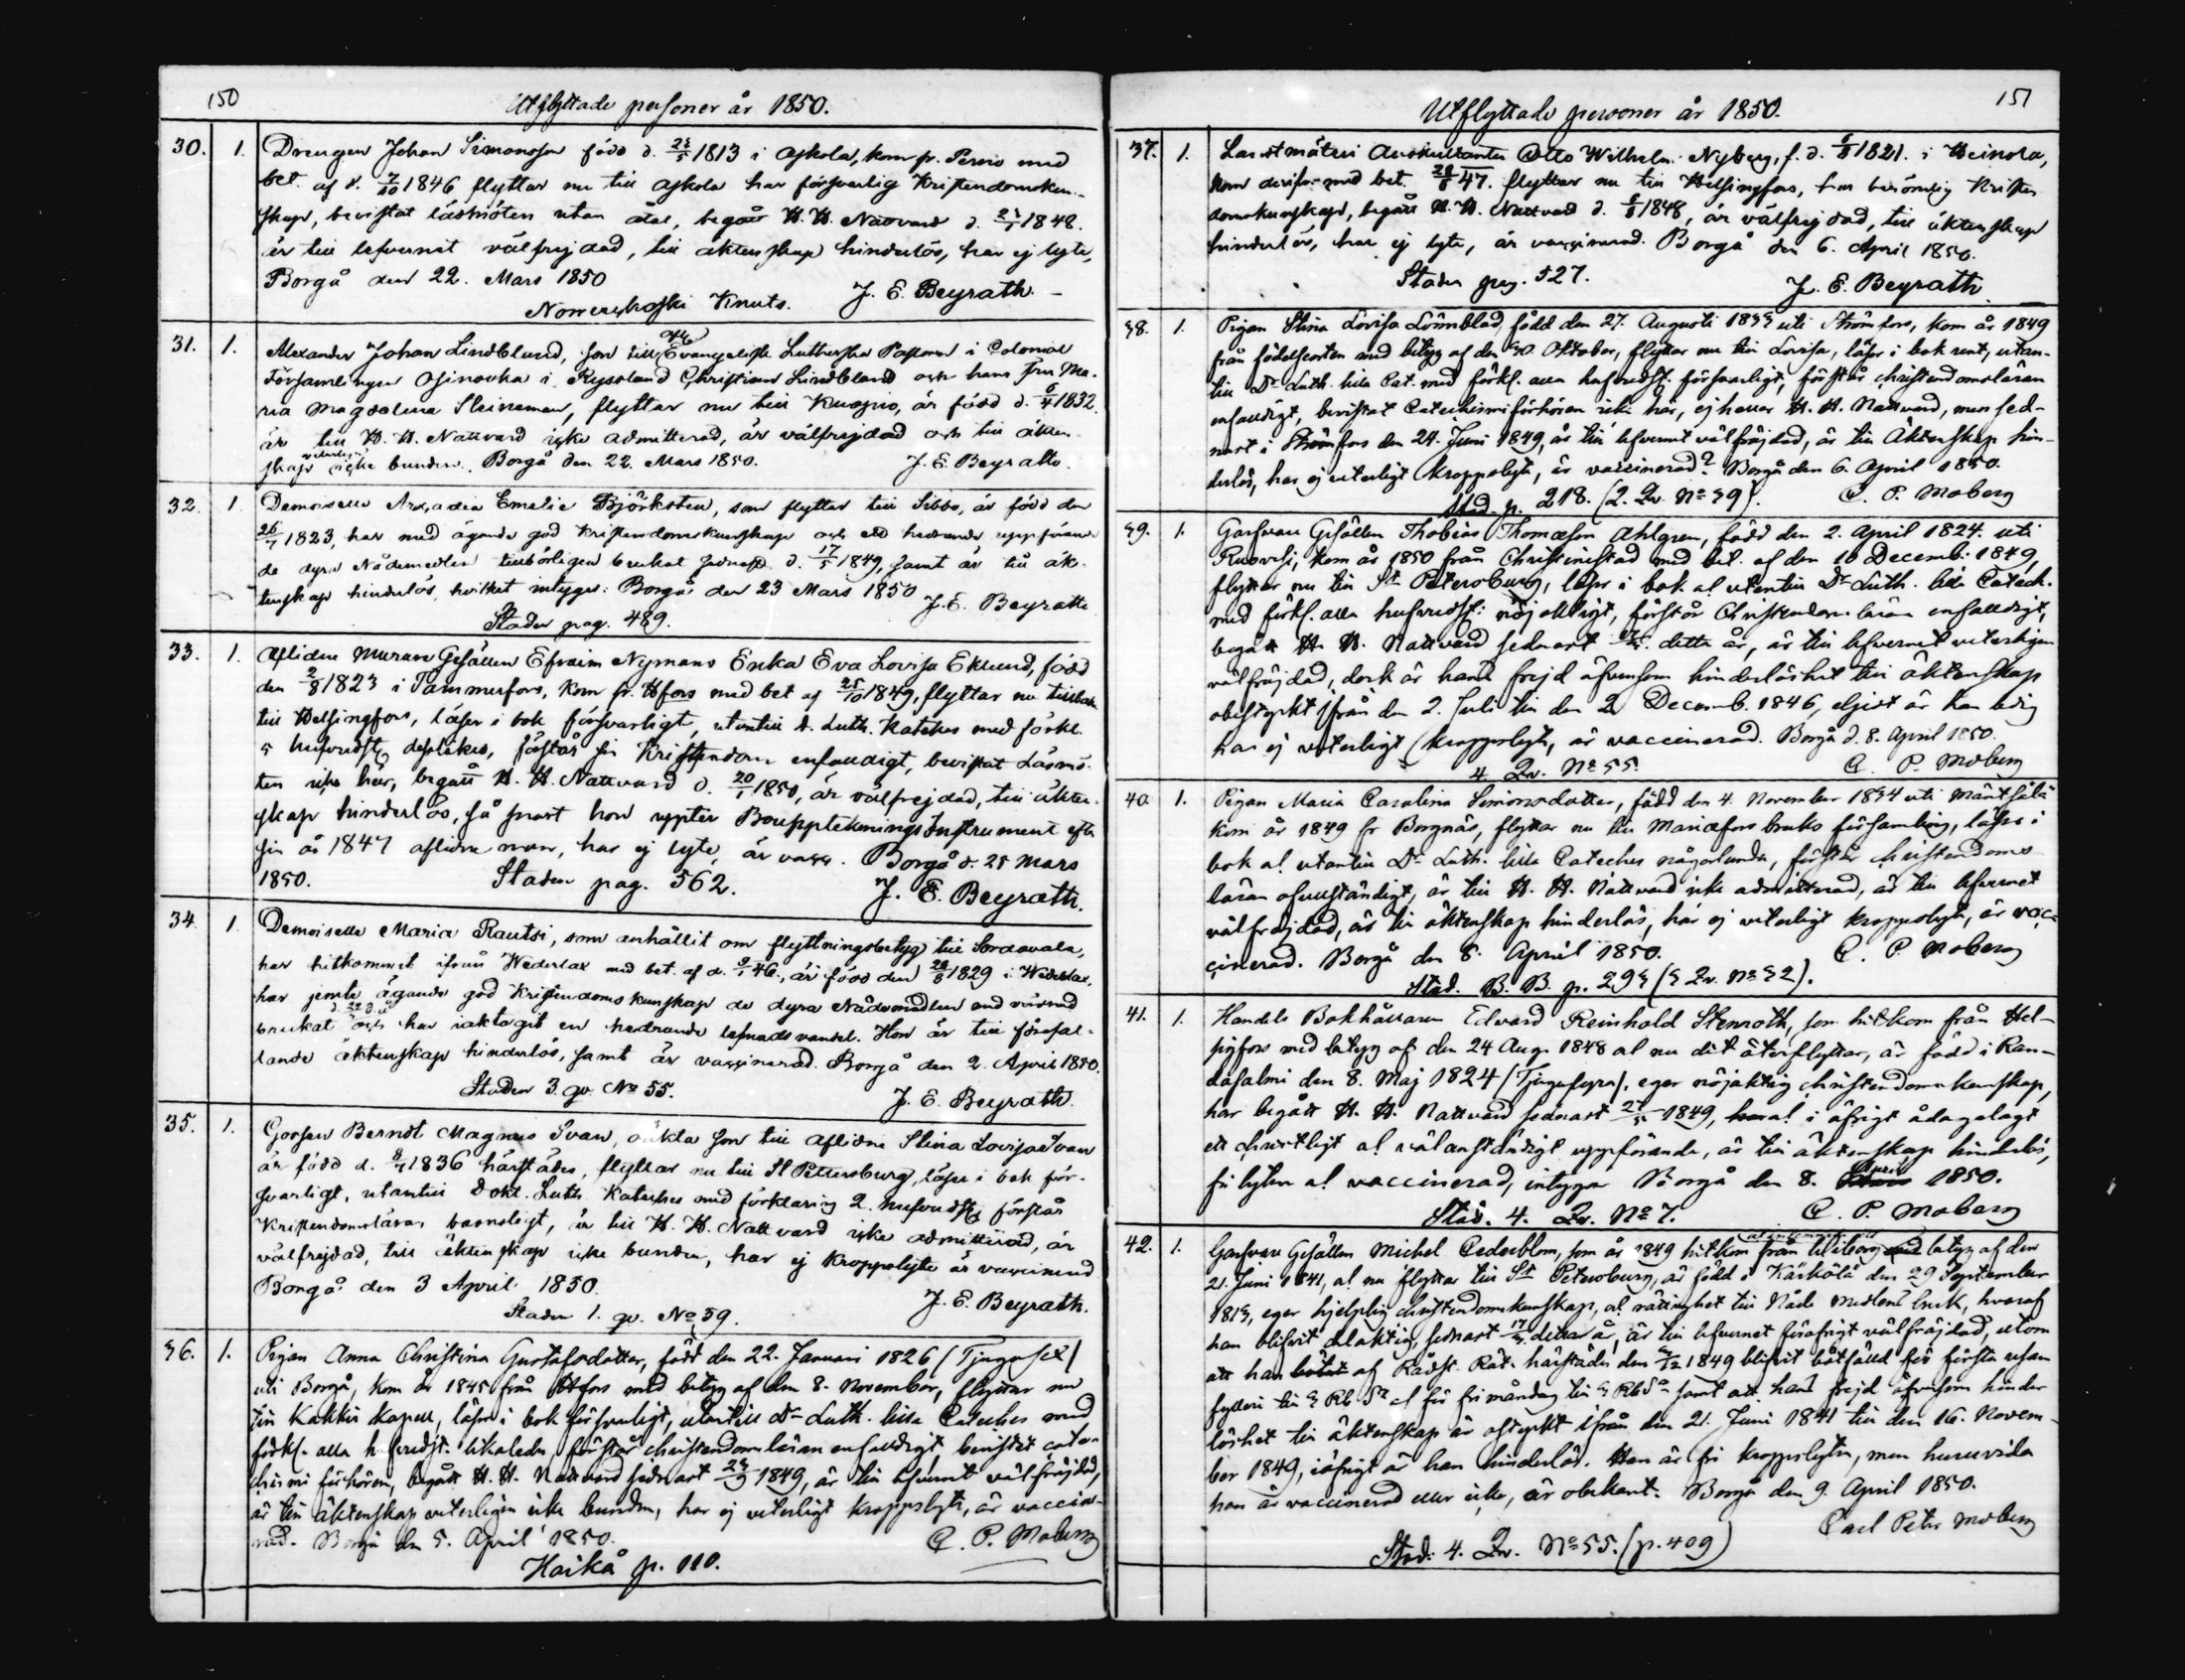 150
Utflyttade personer år 1850.
30. 1. Drengen Johan Simonsson född d. 23/5 1813 i Askola, kom fr. Perno med
bet. af d. 7/10 1846 flyttar nu till Askola har försvarlig Kristendomskun-
skap, bevistat läsmöten utan åtal, begått H. H. Nattvard d. 1848.
är till lefvernet välfrejdad, till äktenskap hinderlös, har ej lyte,
Borgå den 22. Mars 1850
Knuts. J. E. Beyrath.
31. 1. Alexander Johan Lindblund, son till Evangelisk Lutherska Pastorn i Colonial
Församlingen Osinovka i Ryssland Christian Lindblund och hans fru Ma-
ria Magdalena Steineman, flyttar nu till Kuopio, är född d. 6/4 1832.
är till H. H. Nattvard icke admitterad, är välfrejdad och till äkten-
skap icke bunden. Borgå den 22. Mars 1850. J. E. Beyrath.
32. 1. Demoiselle Emelie Björksten, som flyttar till Sibbo, är född den
26/7 1823, har med ägande god Kristendomskunskap och ett hedrande uppföran-
de dyra Nådemedlen tillbörligen brukat sednast d. 17/5 1849, samt är till äk-
tenskap hinderlös, hvilket intygas: Borgå den 23 Mars 1850 J. E. Beyrath
Staden pag. 489.
33. 1. Aflidne Murare Gesällen Efraim Nymans Enka Eva Lovisa Eklund, född
den 2/8 1823 i Tammerfors, kom fr. Hfors med bet af 25/10 1849, flyttar nu tillbaka
till Helsingfors, läser i bok försvarligt, utantill D. Luth. Kateches med förkl.
5 hufvudst. deslikes, förstår sin Kristendom enfaldigt, bevistat Läsmö-
ten icke här, begått H. H. Nattvard d. 20/1 1850, är välfrejdad, till äkten-
skap hinderlös, så snart hon uppter Bouppteknings Instrument efter
sin år 1847 aflidne man, har ej lyte, är vacc. Borgå d. 25 Mars
1850. Staden pag. 562. J. E. Beyrath.
34. 1. Demoiselle Maria Rautsi, som anhållit om flyttningsbetyg till Sordavala,
har hitkommit ifrån Wederlax med bet. af d. 9/1 46., är född den 1829 i Wederlax,
har jemte ägande god Kristendoms kunskap de dyra Nådemedlen med vördnad
brukat och har iakttagit en hedrande lefnads vandel. Hon är till förefal-
lande äktenskap hinderlös, samt är vaccinerad. Borgå den 2. April 1850.
Staden 3. qv. No 55. J. E. Beyrath.
35. 1. Gossen Berndt Magnus Svan, oäkta son till aflidne Stina Lovisa Svan
är född d. 8/7 1836 härstädes, flyttar nu till St Petersburg, läser i bok för-
svarligt, utantill Dokt. Luth. Kateches med förklaring 2. hufvudst. förstår
Kristendomsläran barnsligt, är till H. H. Nattvard icke admitterad, är
välfrejdad, till äktenskap icke bunden, har ej kroppslyte är vaccinerad
Borgå den 3 April 1850. J. E. Beyrath.
Staden 1. qv. No 59.
36. 1. Pigan Anna Christina Gustafsdotter, född den 22. Januari 1826 (Tjugusex)
uti Borgå, kom år 1845 från Hfors med betyg af den 8. November, flyttar nu
till Kapell, läser i bok försvarligt, utantill Dr Luth. lilla Cateches med
förkl. alla hufvudst. likaledes förstår christendomsläran enfaldigt bevistat cate-
chismi förhören, begått H. H. Nattvard sednast 23/9 1849, är till lefvernet välfräjdad,
är till äktenskap veterligen icke bunden, har ej veterligt kroppslyte, är vaccine-
rad. Borgå den 5. April 1850. C. P. Moberg
Haikå p. 110.
151
Utflyttade personer år 1850.
37. 1. Landtmäteri Auskultanten Otto Wilhelm Nyberg, f. d. 1821. i Heinola,
kom derifrån med bet. 47. flyttar nu till Helsingfors, har berömlig Kristen-
domskunskap, begått H. H. Nattvard d. 1848, är välfrejdad, till äktenskap
hinderlös, har ej lyte, är vaccinerad. Borgå den 6. April 1850.
Staden pag. 527. J. E. Beyrath
38. 1. Pigan Stina Lovisa Lönnblad, född den 27. Augusti 1833 uti Strömfors, kom år 1849
från födelseorten med betyg af den 30. Oktober, flyttar nu till Lovisa, läser i bok rent, utan-
till Dr Luth. lilla Cat. med förkl. alla hufvudst. försvarligt, förstår christendomsläran
enfaldigt, bevistat Catechismiförhören icke här, ej heller H. H. Nattvard, men sed-
nast i Strömfors den 24. Juni 1849, är till lefvernet välfräjdad, är till Äktenskap hin-
derlös, har ej veterligt kroppslyte, är vaccinerad? Borgå den 6. April 1850.
Stad. p. 218. (2. Qv. No 39). C. P. Moberg
39. 1. Garfvare Gesällen Thobias Thomasson Ahlgren, född den 2. April 1824. uti
Ruovesi, kom år 1850 från Christinestad med bet. af den 10 Decemb. 1849,
flyttar nu till St Petersburg, läser i bok at utantill Dr Luth. lilla Catech.
med förkl. alla hufvudst. nöjaktigt, förstår Christendoms läran enfaldigt,
begått H. H. Nattvard sednast detta år, är till lefvernet veterligen
välfräjdad, dock är hans frejd äfvensom hinderlöshet till äktenskap
obestyrkt ifrån den 2. Juli till den 2 Decemb. 1846, eljest är han ledig
har ej veterligt kroppslyte, är vaccinerad. Borgå d. 8. April 1850.
4 Qv. No 55. C. P. Moberg
40. 1. Pigan Maria Carolina Simonsdotter, född den 4. November 1834 uti Mäntsälä
kom år 1849 fr Borgnäs, flyttar nu till Mariæfors bruks församling, läser i
bok at utantill Dr Luth. lilla Cateches någorlunda, förstår christendoms
läran ofullständigt, är till H. H. Nattvard icke admitterad, är till lefvernet
välfräjdad, är till äktenskap hinderlös, har ej veterligt kroppslyte, är vac-
cinerad. Borgå den 8. April 1850. C. P. Moberg
Stad. B. B. p. 293 (3 Qv. No 32).
41. 1. Handels Bokhållaren Edvard Reinhold Stenroth, som hitkom från Hel-
singfors med betyg af den 24 Aug. 1848 at nu dit återflyttar, är född i Ran-
dasalmi den 8. Maj 1824 (Tjugufyra), eger nöjaktig christendomskunskap,
har begått H. H. Nattvard sednast 27/5 1849, i öfrigt ådagalagt
ett christligt at välanständigt uppförande, är till äktenskap hinderlös,
fri lyten at vaccinerad, intygar Borgå den 8. April 1850.
Stad. 4. Qv. No 7. C. P. Moberg
42. 1. Garfvare Gesällen Michel Cederblom, som år 1849 hitkom från Wiborg betyg af den
21. Juni 1841, at nu flyttar till St Petersburg, är född i Kärkölä den 29 September
1813, eger hjelplig christendomskunskap, at rättighet till Nåde medlens bruk, hvaraf
han blifvit delaktig sednast detta år, är till lefvernet föröfrigt välfräjdad, utom
att han af Rådst. Rät. härstädes den 1849 blifvit bötfälld för första resan
fylleri till 3 Rb. Sr at för frimåndag till 3 Rb Sr samt att hans frejd äfvensom hinder
löshet till äktenskap är ostyrkt ifrån den 21. Juni 1841 till den 16. Novem-
ber 1849, iöfrigt är han hinderlös. Han är fri kroppslyten, men huruvida
han är vaccinerad eller icke, är obekant. Borgå den 9. April 1850.
Carl Peter Moberg
Stad. 4. Qv. No 55. (p. 409)